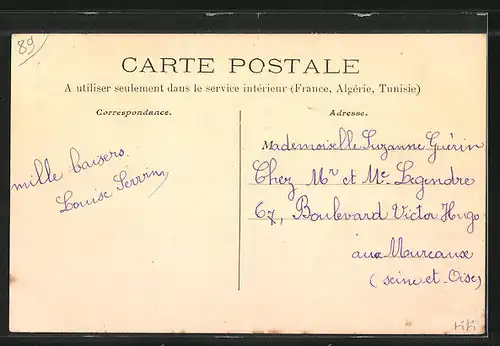 89
CARTE POSTALE
A utiliser seulement dans le service intérieur (France, Algérie, Tunisie)
Correspondance.
Adresse.
mille baisers.
Louise Perrin
Mademoiselle Suzanne Guérin
Chez Mr et Me Legendre
67, Boulevard Victor Hugo
aux Mureaux
(Seine et Oise)